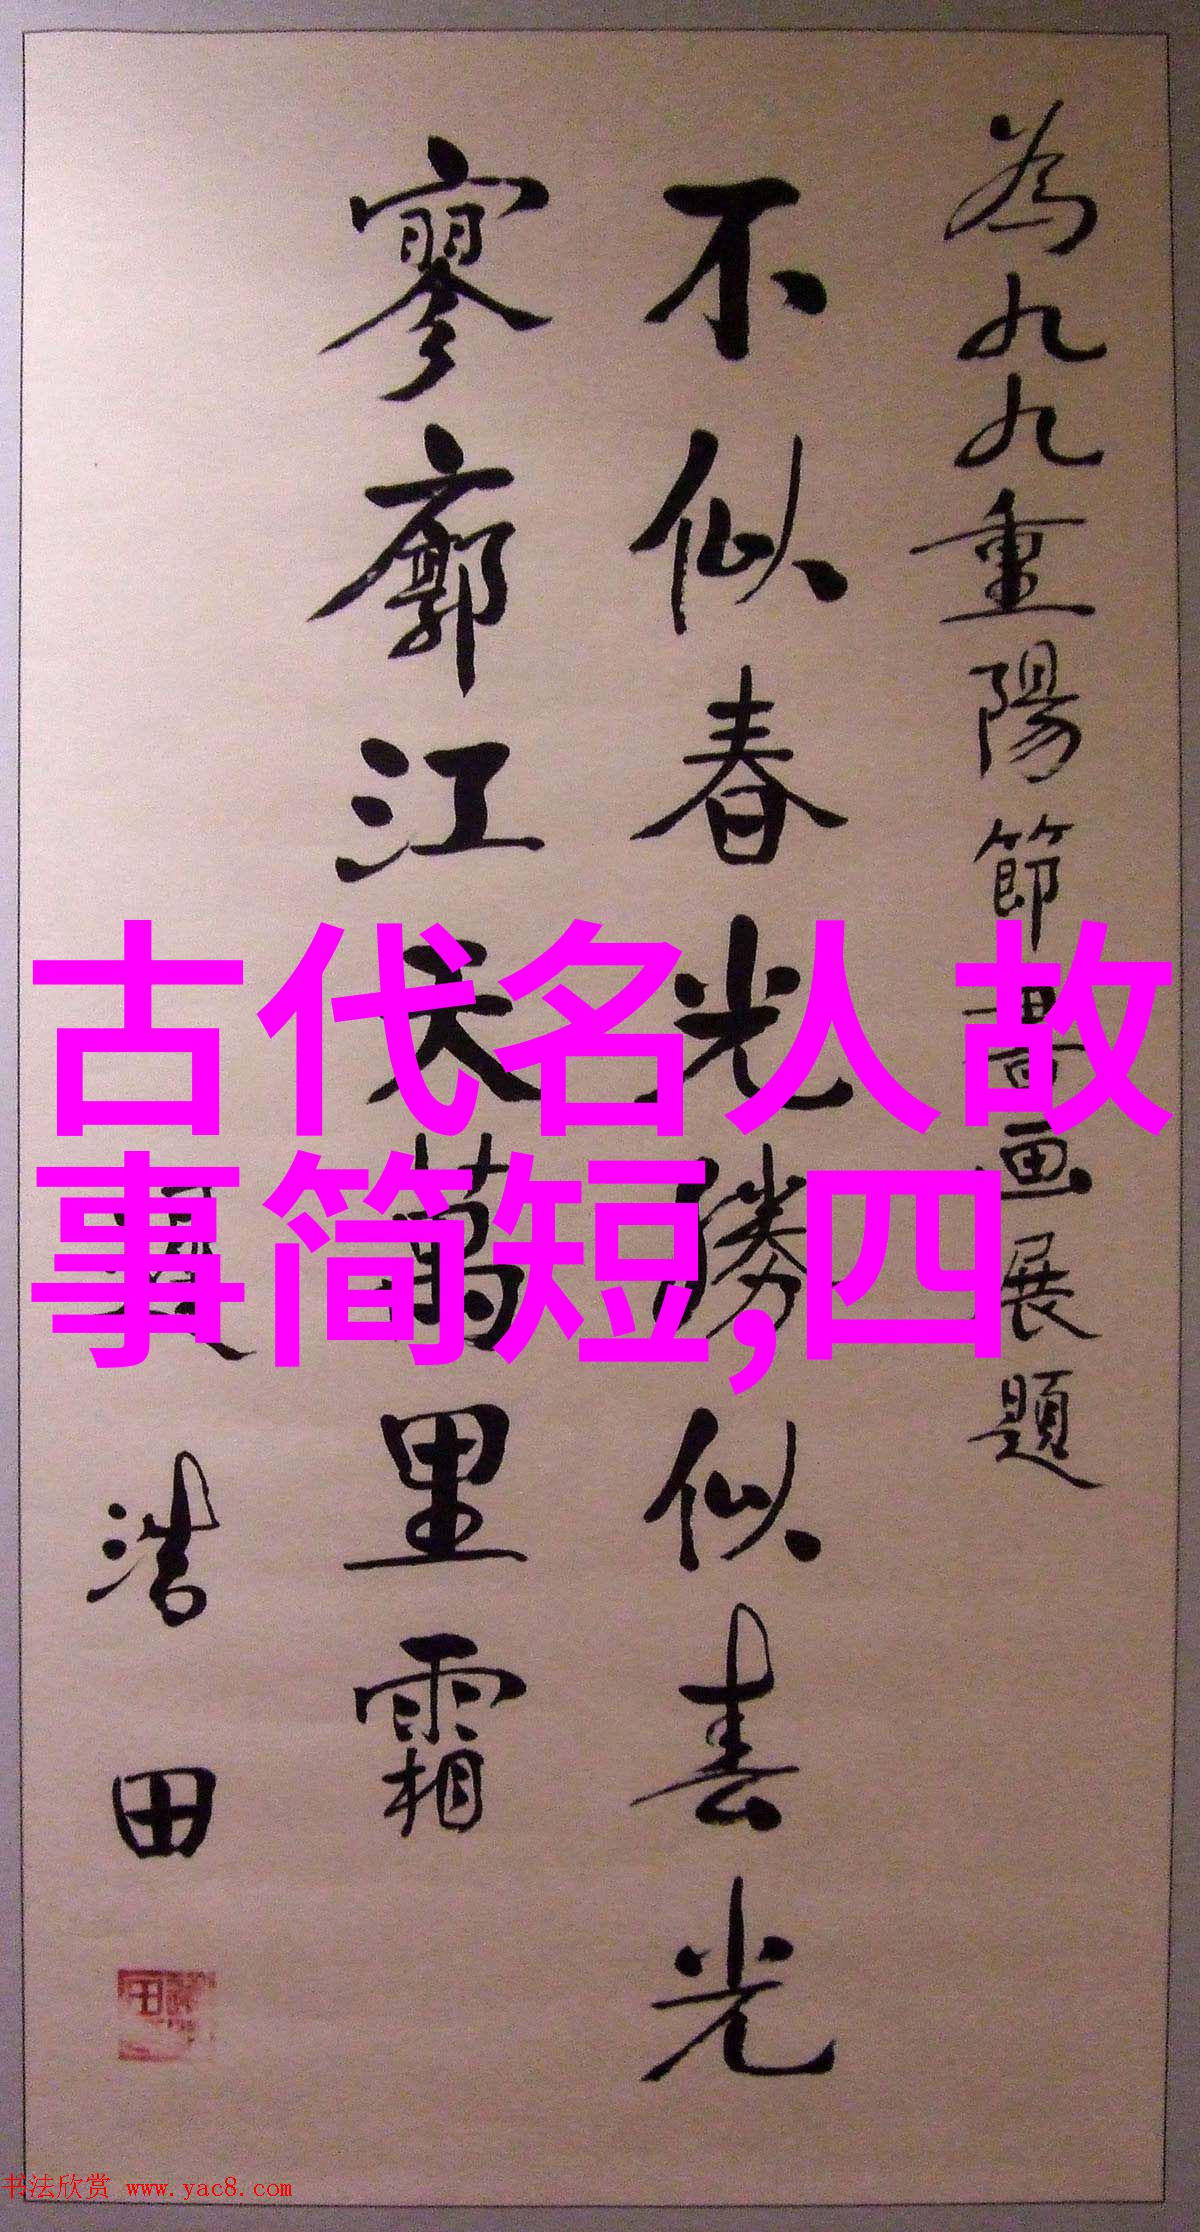 為九九重陽節書画展題
不似春光勝似春光
寥廓江天萬里霜
浩田
古代名人故
事简短,四
书法欣赏 www.yac8.com